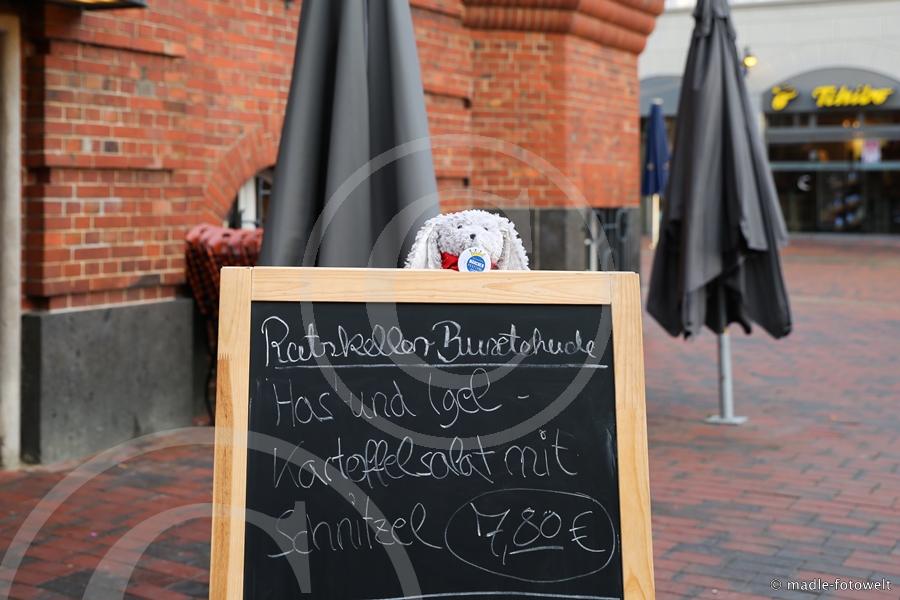 Tchibo
Ratskeller Buxtehude
Has' und Igel -
Kartoffelsalat mit
Schnitzel 7,80 €
© madle-fotowelt